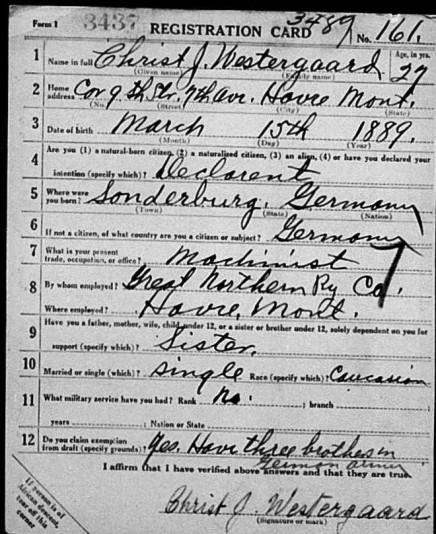 Form 1 3437 REGISTRATION CARD 3489 No. 161.
1 Name in full Christ J. Westergaard Age, in yrs. 27
(Given name) (Family name)
2 Home address Cor 9th St. 7th Av. Havre Mont.
(No.) (Street) (City) (State)
3 Date of birth March 15th 1889.
(Month) (Day) (Year)
4 Are you (1) a natural-born citizen, (2) a naturalized citizen, (3) an alien, (4) or have you declared your
intention (specify which)? Declarent
5 Where were you born? Sonderburg. Germany
(Town) (State) (Nation)
6 If not a citizen, of what country are you a citizen or subject? Germany
7 What is your present trade, occupation, or office? Machinist
8 By whom employed? Great Northern Ry Co.
Where employed? Havre, Mont.
9 Have you a father, mother, wife, child under 12, or a sister or brother under 12, solely dependent on you for
support (specify which)? Sister.
10 Married or single (which)? single Race (specify which)? Caucasion
11 What military service have you had? Rank no. ; branch
years ; Nation or State
12 Do you claim exemption from draft (specify grounds)? Yes. Have three brothes in
German army
I affirm that I have verified above answers and that they are true.
Christ J. Westergaard
(Signature or mark)
If person is of African descent, tear off this corner